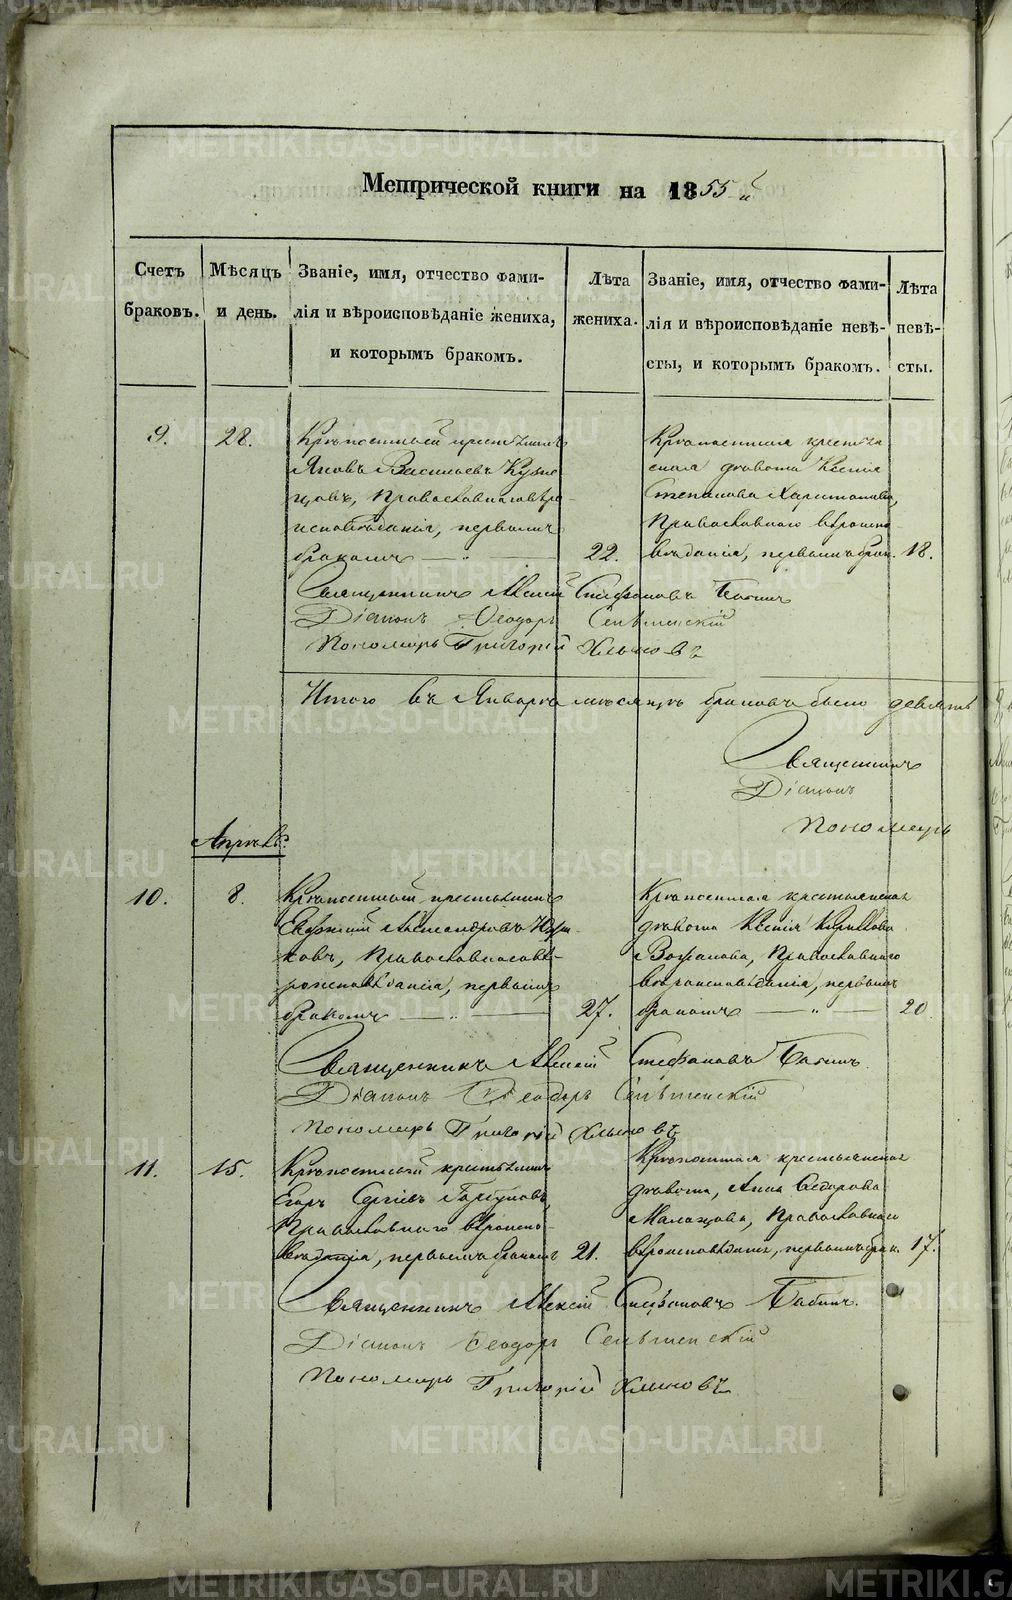 Метрической книги на 1855й
Счетъ браковъ.
Мѣсяцъ и день.
Званіе, имя, отчество фами-
лія и вѣроисповѣданіе жениха,
и которымъ бракомъ.
Лѣта
жениха.
Званіе, имя, отчество фами-
лія и вѣроисповѣданіе невѣ-
сты, и которымъ бракомъ.
Лѣта
невѣ-
сты.
9.
28.
Крѣпостный крестьянинъ
Яковъ Васильевъ Кузне
цовъ, Православнаго вѣро-
исповѣданія, первымъ
бракомъ — „ —
22.
Крѣпостная крестьян
ская дѣвица Ксенія
Степанова Харитонова,
Православнаго вѣроиспо
вѣданія, первымъ брак.
18.
Священникъ Алексій Стефановъ Бабинъ
Діаконъ Ѳеодоръ
Пономарь Григорій Хлыновъ
Итого въ Январѣ мѣсяцѣ браковъ было девять
Священникъ
Діаконъ
Пономарь
Апрѣль.
10.
8.
Крѣпостный крестьянинъ
Евфимій Александровъ
ковъ, Православнаго вѣ-
роисповѣданія, первымъ
бракомъ — „ —
27.
Крѣпостная крестьянская
дѣвица Ксенія Кириллова
Православнаго
вѣроисповѣданія, первымъ
бракомъ — „ —
20
Священникъ Алексій Стефановъ Бабинъ.
Діаконъ Ѳеодоръ
Пономарь Григорій Хлыновъ
11.
15.
Крѣпостный крестьянинъ
Егоръ Сергіевъ Горбуновъ,
Православнаго вѣроиспо-
вѣданія, первымъ бракомъ
21.
Крѣпостная крестьянская
дѣвица, Анна Ѳедорова
Православнаго
вѣроисповѣданія, первымъ брак.
17.
Священникъ Алексій Стефановъ Бабинъ.
Діаконъ Ѳеодоръ
Пономарь Григорій Хлыновъ
METRIKI.GASO-URAL.RU